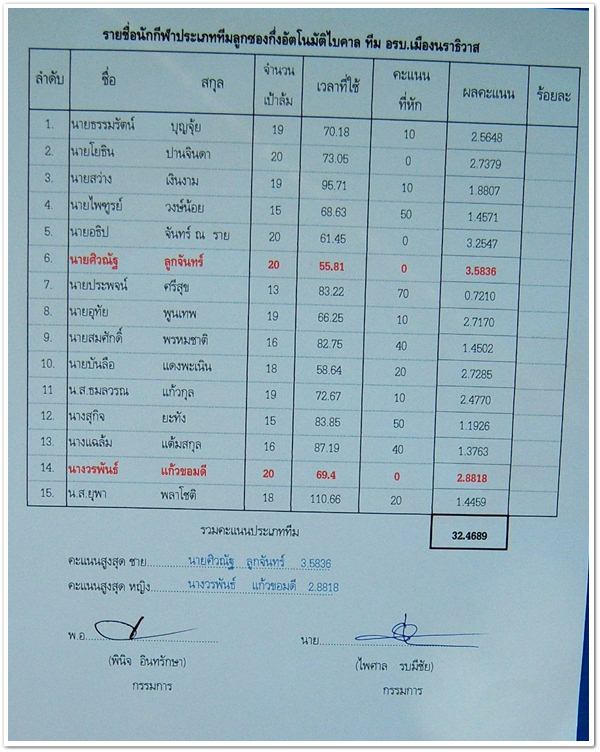 รายชื่อนักกีฬาประเภททีมลูกซองกึ่งอัตโนมัติไบคาล ทีม อรบ.เมืองนราธิวาส
ลำดับ ชื่อ สกุล จำนวนเป้าล้ม เวลาที่ใช้ คะแนนที่หัก ผลคะแนน ร้อยละ
1. นายธรรมรัตน์ บุญจุ้ย 19 70.18 10 2.5648
2. นายโยธิน ปานจินดา 20 73.05 0 2.7379
3. นายสว่าง เงินงาม 19 95.71 10 1.8807
4. นายไพฑูรย์ วงษ์น้อย 15 68.63 50 1.4571
5. นายอธิป จันทร์ ณ ราย 20 61.45 0 3.2547
6. นายศิวณัฐ ลูกจันทร์ 20 55.81 0 3.5836
7. นายประพจน์ ศรีสุข 13 83.22 70 0.7210
8. นายอุทัย พูนเทพ 19 66.25 10 2.7170
9. นายสมศักดิ์ พรหมชาติ 16 82.75 40 1.4502
10. นายบันลือ แดงพะเนิน 18 58.64 20 2.7285
11 น.ส.ธมลวรณ แก้วกุล 19 72.67 10 2.4770
12. นางสุกิจ ยะทัง 15 83.85 50 1.1926
13. นางแฉล้ม แต้มสกุล 16 87.19 40 1.3763
14. นางวรพันธ์ แก้วขอมดี 20 69.4 0 2.8818
15. น.ส.ยุพา พลาโชติ 18 110.66 20 1.4459
รวมคะแนนประเภททีม 32.4689
คะแนนสูงสุด ชาย นายศิวณัฐ ลูกจันทร์ 3.5836
คะแนนสูงสุด หญิง นางวรพันธ์ แก้วขอมดี 2.8818
พ.อ. นาย
(พินิจ อินทรักษา) (ไพศาล รบมีชัย)
กรรมการ กรรมการ